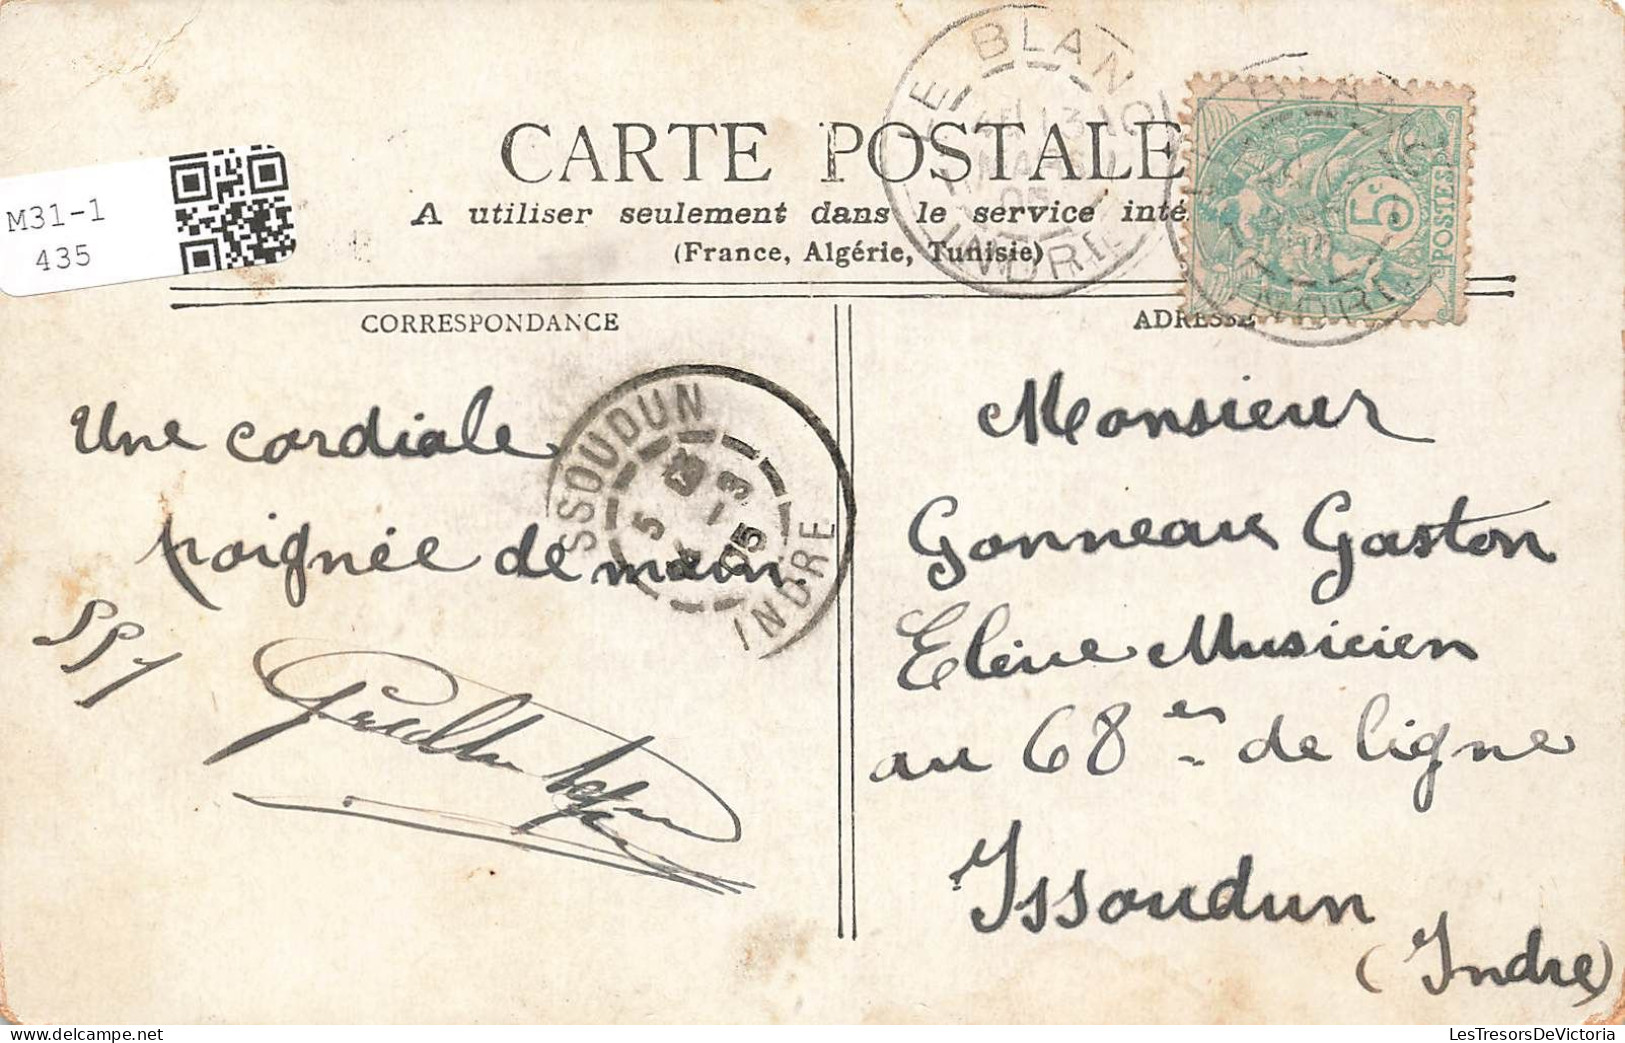 LE BLANC
INDRE
CARTE POSTALE
A utiliser seulement dans le service inté
(France, Algérie, Tunisie)
5c
POSTES
M31-1
435
CORRESPONDANCE
ADRESSE
ISSOUDUN
INDRE
05
Une cordiale
poignée de main.
Monsieur
Gonneau Gaston
Elève Musicien
au 68es de ligne
Issoudun
(Indre)
LesTresorsDeVictoria